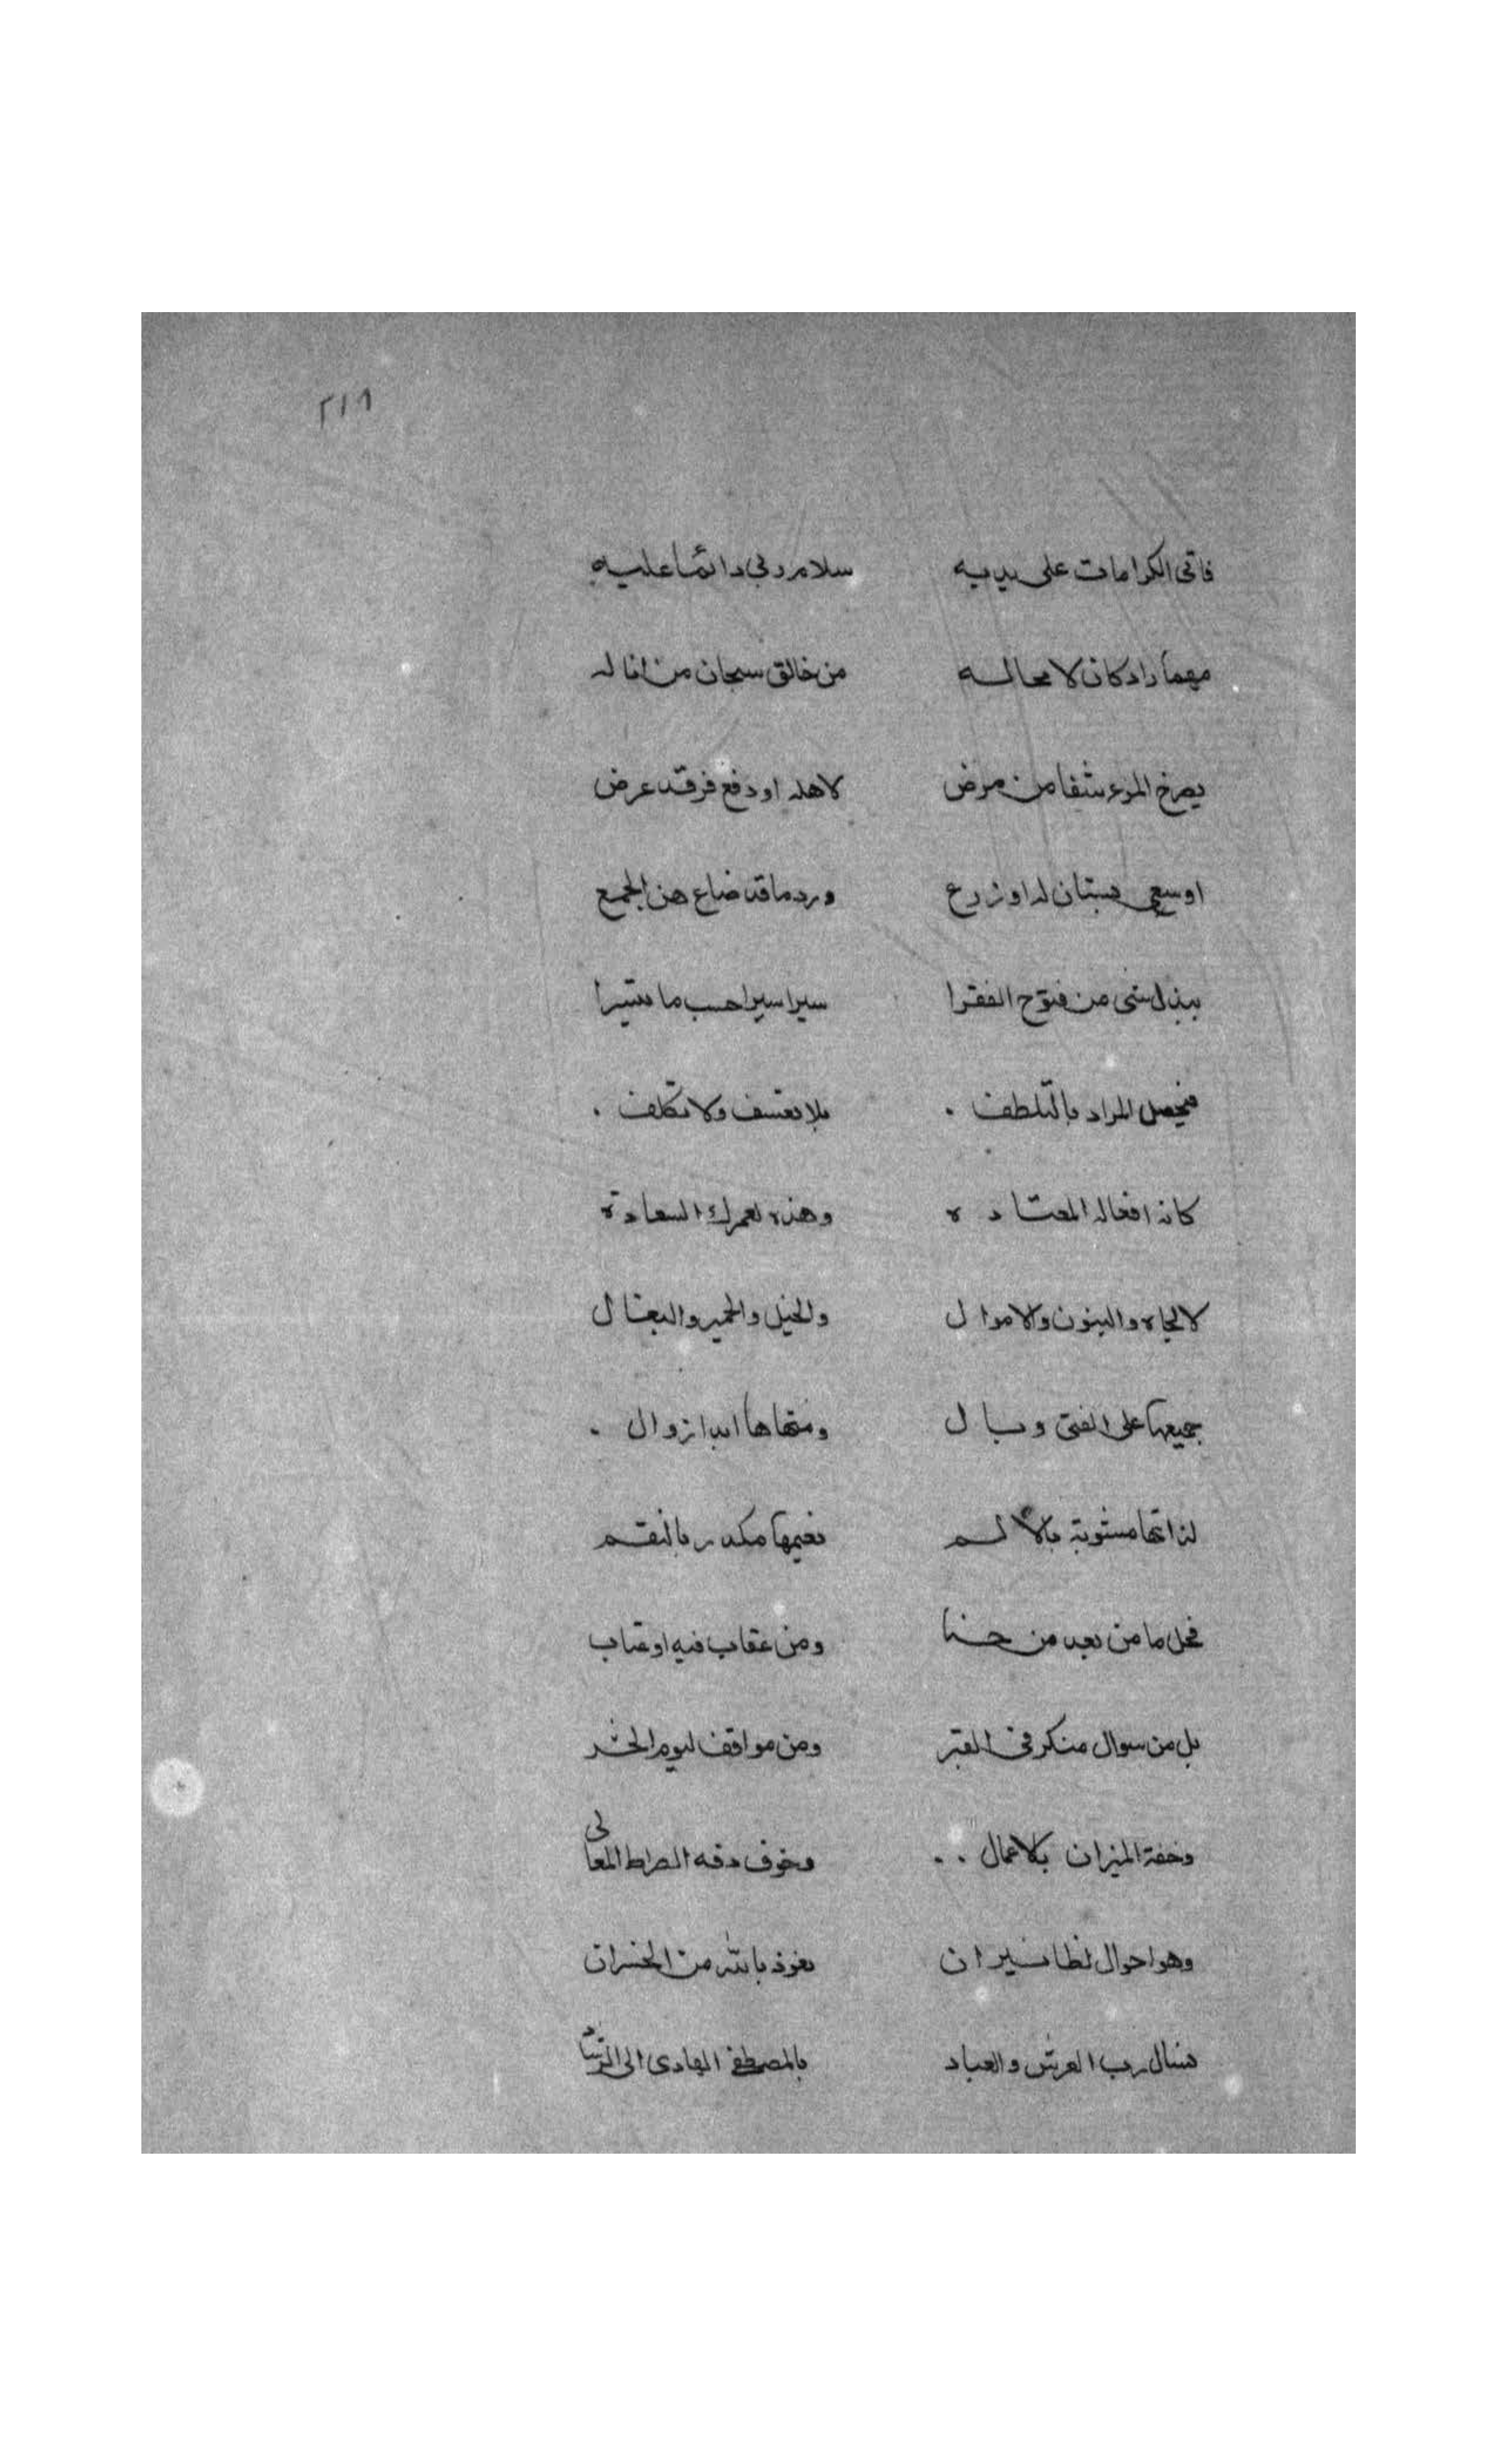 ٢١٨
فاتى الكرامات على يديه سلام ربي دائما عليه
مهما راد كان لا محاله من خالق سبحان من اناله
المرء شفا من مرض لاهله او دفع عرض
او سقي بستان له او زرع ورد ما قد ضاع من الجمع
ببذل شى من فتوح الفقرا سيرا سيرا حسب ما
فيحصل المراد بالتلطف . بلا تعسف ولا تكلف .
كانه افعاله المعتاده وهذه لعمرك السعادة
لا الجاه والبنون والاموال والخيل والحمير والبغال
جميعها على الفتى وبال ومنتهاها ابدا زوال .
لذاتها مشوبة بالألم نعيمها مكدر بالنقم
ما من بعد من ومن عقاب فيه او عتاب
بل من سوال منكر فى القبر ومن مواقف ليوم الحشر
وخفة الميزان بالاعمال .. وخوف دقه الصراط العالى
احوال لظا نيران نعوذ بالله من الخسران
نسال رب العرش والعباد بالمصطفى الهادى الى الرشاد